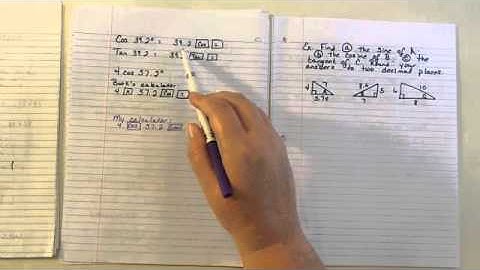 Cos 39.2° = 39.2 Cos =
Tan 39.2 = 39.
4 cos 57.2°
Book's calculator
4 x 57.2 Cos =
My calculator:
4 Cos 57.2
Ex. Find (a) the sine of A,
(b) the cosine of B, (c) the
tangent of C. Round your
answers to two decimal places.
4 7
5.74
5
7
6 10
8